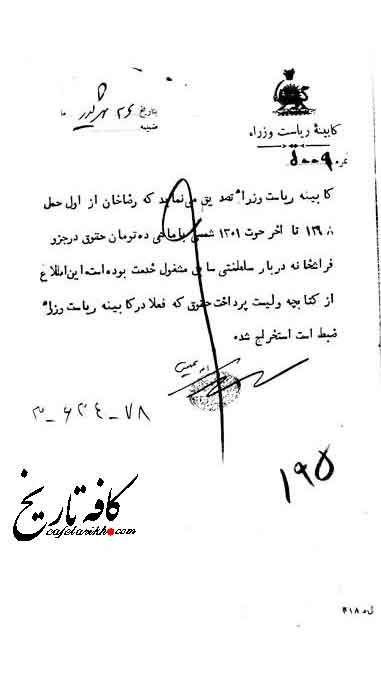 بتاریخ ۲۶ ماه
ضمیمه
کابینهٔ ریاست وزراء
نمره ۵۰۰۹
کابینه ریاست وزراء تصدیق می‌نماید که رضاخان از اول حمل
۱۲۹۸ تا آخر حوت ۱۳۰۱ شمسی با ماهی ده تومان حقوق در جزو
فراشخانه دربار سلطنتی سابق مشغول خدمت بوده است این اطلاع
از کتابچه ولیست پرداخت حقوق که فعلا در کابینه ریاست وزراء
ضبط است استخراج شده
۳-۶۲۴-۷۸
۱۹۵
کافه تاریخ
cafetarikh.com
۴۱۸